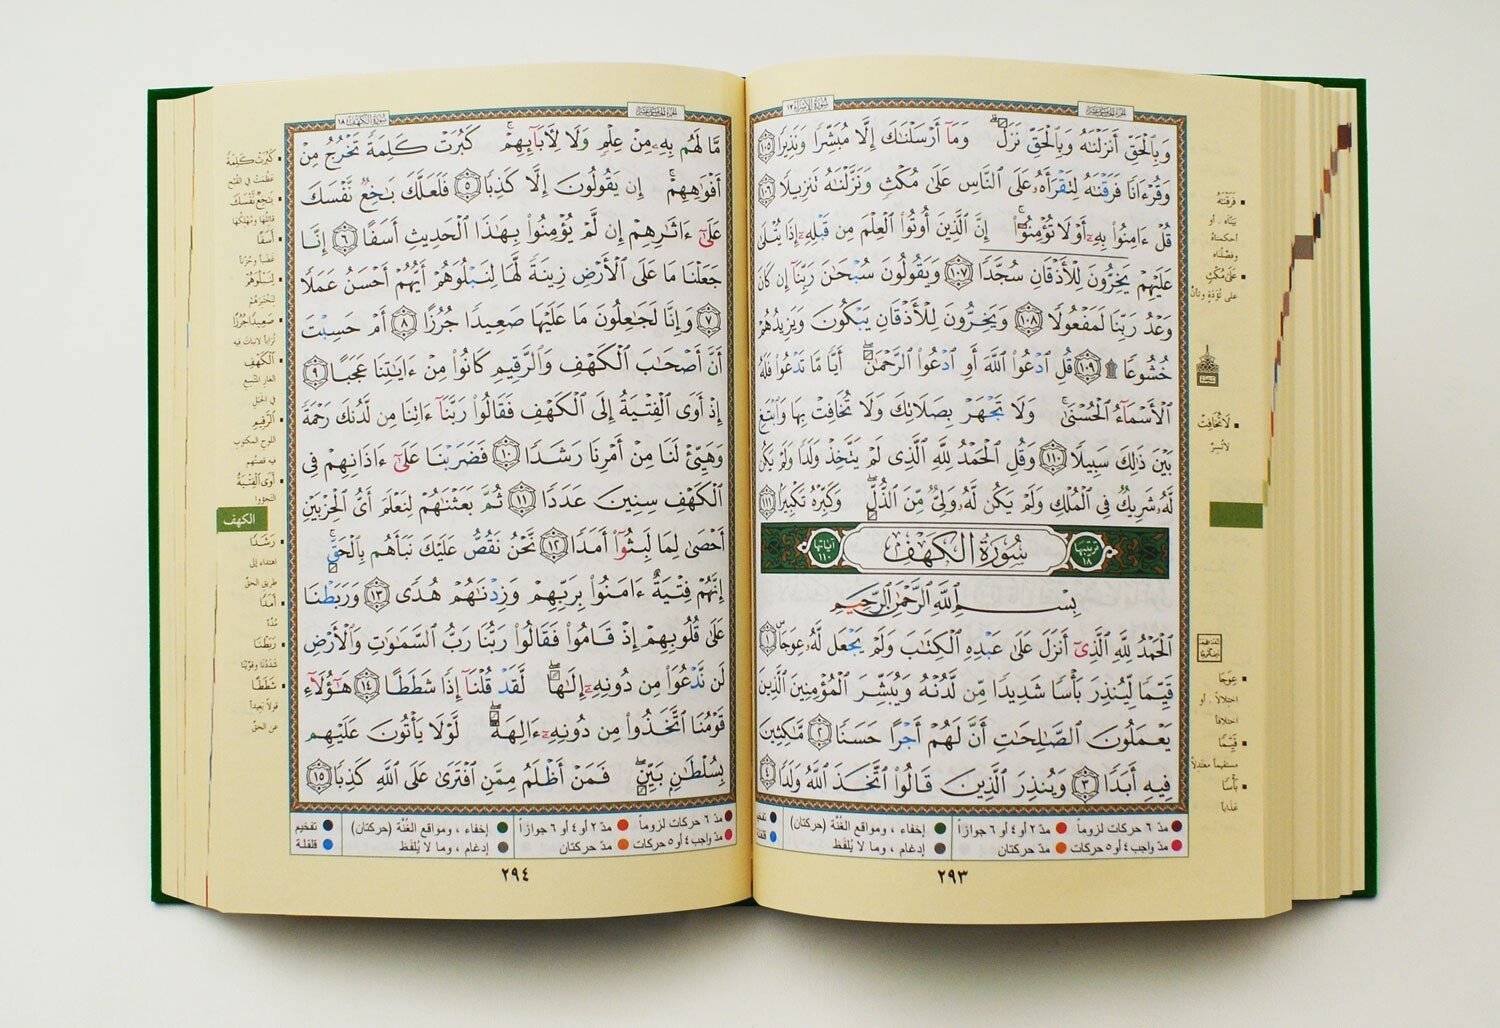 سُورَةُ الإِسْرَاء ١٧
الجزء الخامس عشر
وَبِالْحَقِّ أَنزَلْنَٰهُ وَبِالْحَقِّ نَزَلَ ۗ وَمَآ أَرْسَلْنَٰكَ إِلَّا مُبَشِّرًا وَنَذِيرًا ١٠٥
وَقُرْءَانًا فَرَقْنَٰهُ لِتَقْرَأَهُۥ عَلَى النَّاسِ عَلَىٰ مُكْثٍ وَنَزَّلْنَٰهُ تَنزِيلًا ١٠٦
قُلْ ءَامِنُوا۟ بِهِۦٓ أَوْ لَا تُؤْمِنُوٓا۟ ۚ إِنَّ الَّذِينَ أُوتُوا۟ الْعِلْمَ مِن قَبْلِهِۦٓ إِذَا يُتْلَىٰ
عَلَيْهِمْ يَخِرُّونَ لِلْأَذْقَانِ سُجَّدًا ١٠٧ وَيَقُولُونَ سُبْحَٰنَ رَبِّنَآ إِن كَانَ
وَعْدُ رَبِّنَا لَمَفْعُولًا ١٠٨ وَيَخِرُّونَ لِلْأَذْقَانِ يَبْكُونَ وَيَزِيدُهُمْ
خُشُوعًا ۩ ١٠٩ قُلِ ادْعُوا۟ اللَّهَ أَوِ ادْعُوا۟ الرَّحْمَٰنَ ۖ أَيًّا مَّا تَدْعُوا۟ فَلَهُ
الْأَسْمَآءُ الْحُسْنَىٰ ۚ وَلَا تَجْهَرْ بِصَلَاتِكَ وَلَا تُخَافِتْ بِهَا وَابْتَغِ
بَيْنَ ذَٰلِكَ سَبِيلًا ١١٠ وَقُلِ الْحَمْدُ لِلَّهِ الَّذِى لَمْ يَتَّخِذْ وَلَدًا وَلَمْ يَكُن
لَّهُۥ شَرِيكٌ فِى الْمُلْكِ وَلَمْ يَكُن لَّهُۥ وَلِىٌّ مِّنَ الذُّلِّ ۖ وَكَبِّرْهُ تَكْبِيرًا ١١١
ترتيبها ١٨ سُورَةُ الكَهْفِ آياتها ١١٠
بِسْمِ اللَّهِ الرَّحْمَٰنِ الرَّحِيمِ
الْحَمْدُ لِلَّهِ الَّذِىٓ أَنزَلَ عَلَىٰ عَبْدِهِ الْكِتَٰبَ وَلَمْ يَجْعَل لَّهُۥ عِوَجَا ۜ ١
قَيِّمًا لِّيُنذِرَ بَأْسًا شَدِيدًا مِّن لَّدُنْهُ وَيُبَشِّرَ الْمُؤْمِنِينَ الَّذِينَ
يَعْمَلُونَ الصَّٰلِحَٰتِ أَنَّ لَهُمْ أَجْرًا حَسَنًا ٢ مَّٰكِثِينَ
فِيهِ أَبَدًا ٣ وَيُنذِرَ الَّذِينَ قَالُوا۟ اتَّخَذَ اللَّهُ وَلَدًا ٤
فَرَقْنَٰهُ
بَيَّنَّاه . أو
أحكمناه
وفصّلناه
عَلَىٰ مُكْثٍ
على تُؤَدَةٍ وتأنٍّ
لَا تُخَافِتْ
لا تُسِرَّ
عِوَجَا
اختلالاً . أو
اختلافاً
قَيِّمًا
مستقيماً معتدلاً
بَأْسًا
عذاباً
مدّ ٦ حركات لزوماً مدّ ٢ أو ٤ أو ٦ جوازاً إخفاء ، ومواقع الغُنَّة (حركتان) تفخيم
مدّ واجب ٤ أو ٥ حركات مدّ حركتان إدغام ، وما لا يُلفَظ قلقلة
٢٩٣
الجزء الخامس عشر
سُورَةُ الكَهْف ١٨
مَّا لَهُم بِهِۦ مِنْ عِلْمٍ وَلَا لِأَبَآئِهِمْ ۚ كَبُرَتْ كَلِمَةً تَخْرُجُ مِنْ
أَفْوَٰهِهِمْ ۚ إِن يَقُولُونَ إِلَّا كَذِبًا ٥ فَلَعَلَّكَ بَٰخِعٌ نَّفْسَكَ
عَلَىٰٓ ءَاثَٰرِهِمْ إِن لَّمْ يُؤْمِنُوا۟ بِهَٰذَا الْحَدِيثِ أَسَفًا ٦ إِنَّا
جَعَلْنَا مَا عَلَى الْأَرْضِ زِينَةً لَّهَا لِنَبْلُوَهُمْ أَيُّهُمْ أَحْسَنُ عَمَلًا
٧ وَإِنَّا لَجَٰعِلُونَ مَا عَلَيْهَا صَعِيدًا جُرُزًا ٨ أَمْ حَسِبْتَ
أَنَّ أَصْحَٰبَ الْكَهْفِ وَالرَّقِيمِ كَانُوا۟ مِنْ ءَايَٰتِنَا عَجَبًا ٩
إِذْ أَوَى الْفِتْيَةُ إِلَى الْكَهْفِ فَقَالُوا۟ رَبَّنَآ ءَاتِنَا مِن لَّدُنكَ رَحْمَةً
وَهَيِّئْ لَنَا مِنْ أَمْرِنَا رَشَدًا ١٠ فَضَرَبْنَا عَلَىٰٓ ءَاذَانِهِمْ فِى
الْكَهْفِ سِنِينَ عَدَدًا ١١ ثُمَّ بَعَثْنَٰهُمْ لِنَعْلَمَ أَىُّ الْحِزْبَيْنِ
أَحْصَىٰ لِمَا لَبِثُوٓا۟ أَمَدًا ١٢ نَّحْنُ نَقُصُّ عَلَيْكَ نَبَأَهُم بِالْحَقِّ ۚ
إِنَّهُمْ فِتْيَةٌ ءَامَنُوا۟ بِرَبِّهِمْ وَزِدْنَٰهُمْ هُدًى ١٣ وَرَبَطْنَا
عَلَىٰ قُلُوبِهِمْ إِذْ قَامُوا۟ فَقَالُوا۟ رَبُّنَا رَبُّ السَّمَٰوَٰتِ وَالْأَرْضِ
لَن نَّدْعُوَا۟ مِن دُونِهِۦٓ إِلَٰهًا ۖ لَّقَدْ قُلْنَآ إِذًا شَطَطًا ١٤ هَٰٓؤُلَآءِ
قَوْمُنَا اتَّخَذُوا۟ مِن دُونِهِۦٓ ءَالِهَةً ۖ لَّوْلَا يَأْتُونَ عَلَيْهِم
بِسُلْطَٰنٍۭ بَيِّنٍ ۖ فَمَنْ أَظْلَمُ مِمَّنِ افْتَرَىٰ عَلَى اللَّهِ كَذِبًا ١٥
كَبُرَتْ كَلِمَةً
عظمت في القبح
بَٰخِعٌ نَّفْسَكَ
قاتلها ومهلكها
أَسَفًا
غضباً وحزناً
لِنَبْلُوَهُمْ
لنختبرهم
صَعِيدًا جُرُزًا
تراباً لا نبات فيه
الْكَهْفِ
الغار المتّسع
في الجبل
الرَّقِيمِ
اللوح المكتوب
فيه قصتهم
أَوَى الْفِتْيَةُ
التجؤوا
الكهف
رَشَدًا
اهتداء إلى
طريق الحقّ
أَمَدًا
مدّة
رَبَطْنَا
شددنا وقوّينا
شَطَطًا
قولاً بعيداً
عن الحقّ
مدّ ٦ حركات لزوماً مدّ ٢ أو ٤ أو ٦ جوازاً إخفاء ، ومواقع الغُنَّة (حركتان) تفخيم
مدّ واجب ٤ أو ٥ حركات مدّ حركتان إدغام ، وما لا يُلفَظ قلقلة
٢٩٤